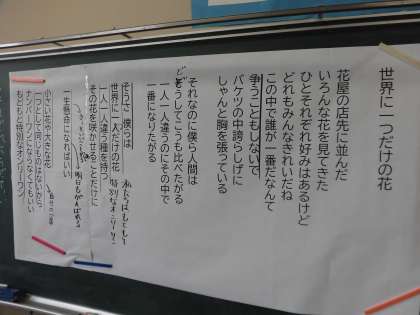 世界に一つだけの花
花屋の店先に並んだ
いろんな花を見てきた
ひとそれぞれ好みはあるけど
どれもみんなきれいだね
この中で誰が一番だなんて
争うこともしないで
バケツの中誇らしげに
しゃんと胸を張っている
それなのに僕ら人間は
どうしてこうも比べたがる
一人一人違うのにその中で
一番になりたがる
そうさ 僕らは
世界に一人だけの花
一人一人違う種を持つ
その花を咲かせることだけに
一生懸命になればいい
小さい花や大きな花
一つとして同じものはないから
ナンバーワンにならなくてもいい
もともと特別なオンリーワン